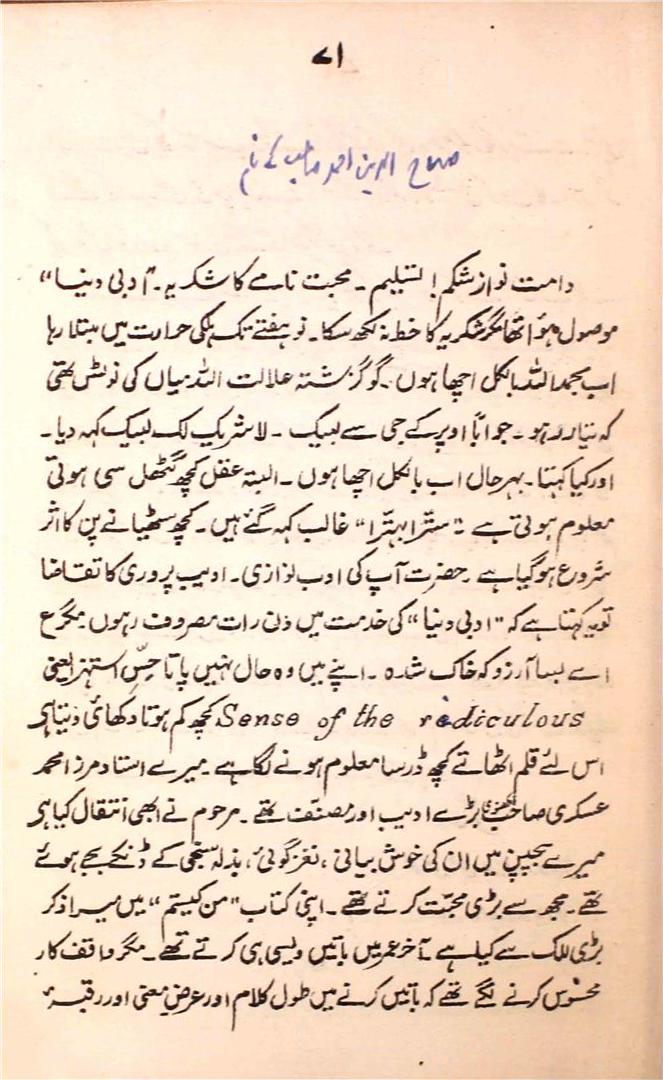 ۷۱
صلاح الدین احمد صاحب کے نام
دامت نوازشکم! تسلیم۔ محبت نامے کا شکریہ۔ "ادبی دنیا"
موصول ہوٴا تھا مگر شکریہ کا خط نہ لکھ سکا۔ نو ہفتے تک ہلکی حرارت میں مبتلا رہا
اب بحمداللہ بالکل اچھا ہوں۔ گو گزشتہ علالت اللہ میاں کی نوٹس تھی
کہ تیار رہو۔ جواباً اوپر کے جی سے لبیک۔ لاشریک لک لبیک کہہ دیا۔
اور کیا کہتا۔ بہر حال اب بالکل اچھا ہوں۔ البتہ عقل کچھ گٹھل سی ہوتی
معلوم ہوتی ہے "سترا بہترا" غالب کہہ گئے ہیں۔ کچھ سٹھیانے پن کا اثر
شروع ہو گیا ہے۔ حضرت آپ کی ادب نوازی۔ ادیب پروری کا تقاضا
تو یہ کہتا ہے کہ "ادبی دنیا" کی خدمت میں دن رات مصروف رہوں مگر ع
اے بسا آرزو کہ خاک شدہ۔ اپنے میں وہ حال نہیں پاتا حسِّ استہزا یعنی
Sense of the rediculous کچھ کم ہوتا دکھائی دیتا ہی
اس لئے قلم اٹھاتے کچھ ڈر سا معلوم ہونے لگا ہے۔ میرے استاد مرزا محمد
عسکری صاحب لکھنوی بڑے ادیب اور مصنّف تھے۔ مرحوم نے ابھی انتقال کیا ہی
میرے بچپن میں ان کی خوش بیانی، نغزگوئی، بذلہ سنجی کے ڈنکے بجے ہوئے
تھے۔ مجھ سے بڑی محبّت کرتے تھے۔ اپنی کتاب "من کیستم" میں میرا ذکر
بڑی للک سے کیا ہے۔ آخر عمر میں باتیں ویسی ہی کرتے تھے۔ مگر واقف کار
محسوس کرنے لگے تھے کہ باتیں کرنے میں طول کلام اور عرضِ معنی اور رقبۂ